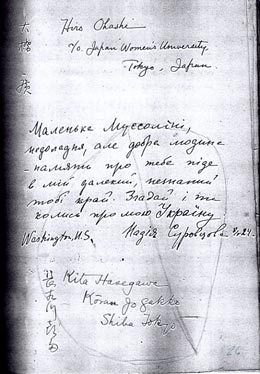 大橋 広
Hiro Ohashi
c/o Japan Women's University,
Tokyo, Japan.
Маленька Муссоліні,
недоладня, але добра людино
- памяти про тебе піде
в мій далекий, незнаний
тобі край. Згадай і ти
колись про мою Україну
Washington, U.S. Надія Суровцова
Kita Hasegawa
Koran Jogakko
Shiba Tokyo
長谷川
26